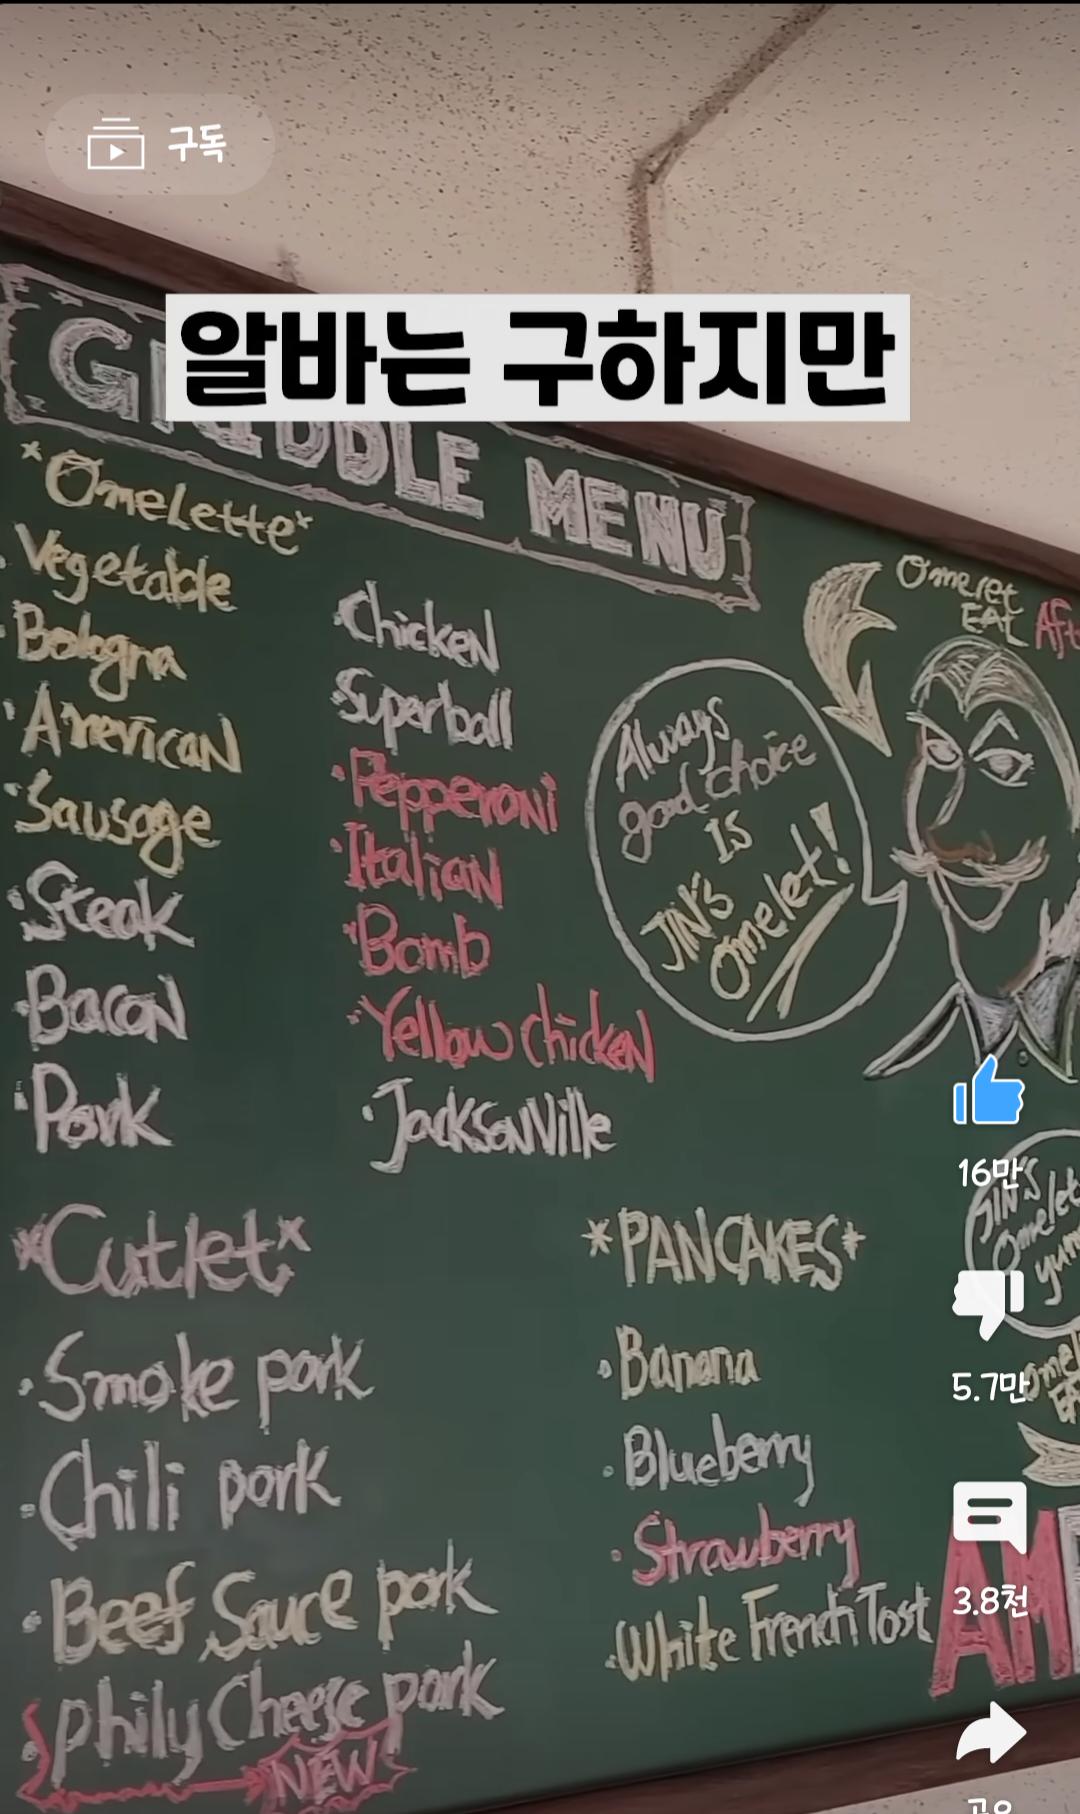 구독
알바는 구하지만
GRIDDLE MENU
*Omelette*
Vegetable
Bologna
American
Sausage
Steak
Bacon
Pork
Chicken
Superball
Pepperoni
Italian
Bomb
Yellow chicken
Jacksonville
Omeret
EAt Aft
Always
good choice
IS
JIN'S
omelet!
*Cutlet*
Smoke pork
Chili pork
Beef Sauce pork
Phily Cheese pork
NEW
*PANCAKES*
Banana
Blueberry
Strawberry
White French Tost
16만
JIN'S
Omelet
yum
5.7만
3.8천
AM
공유